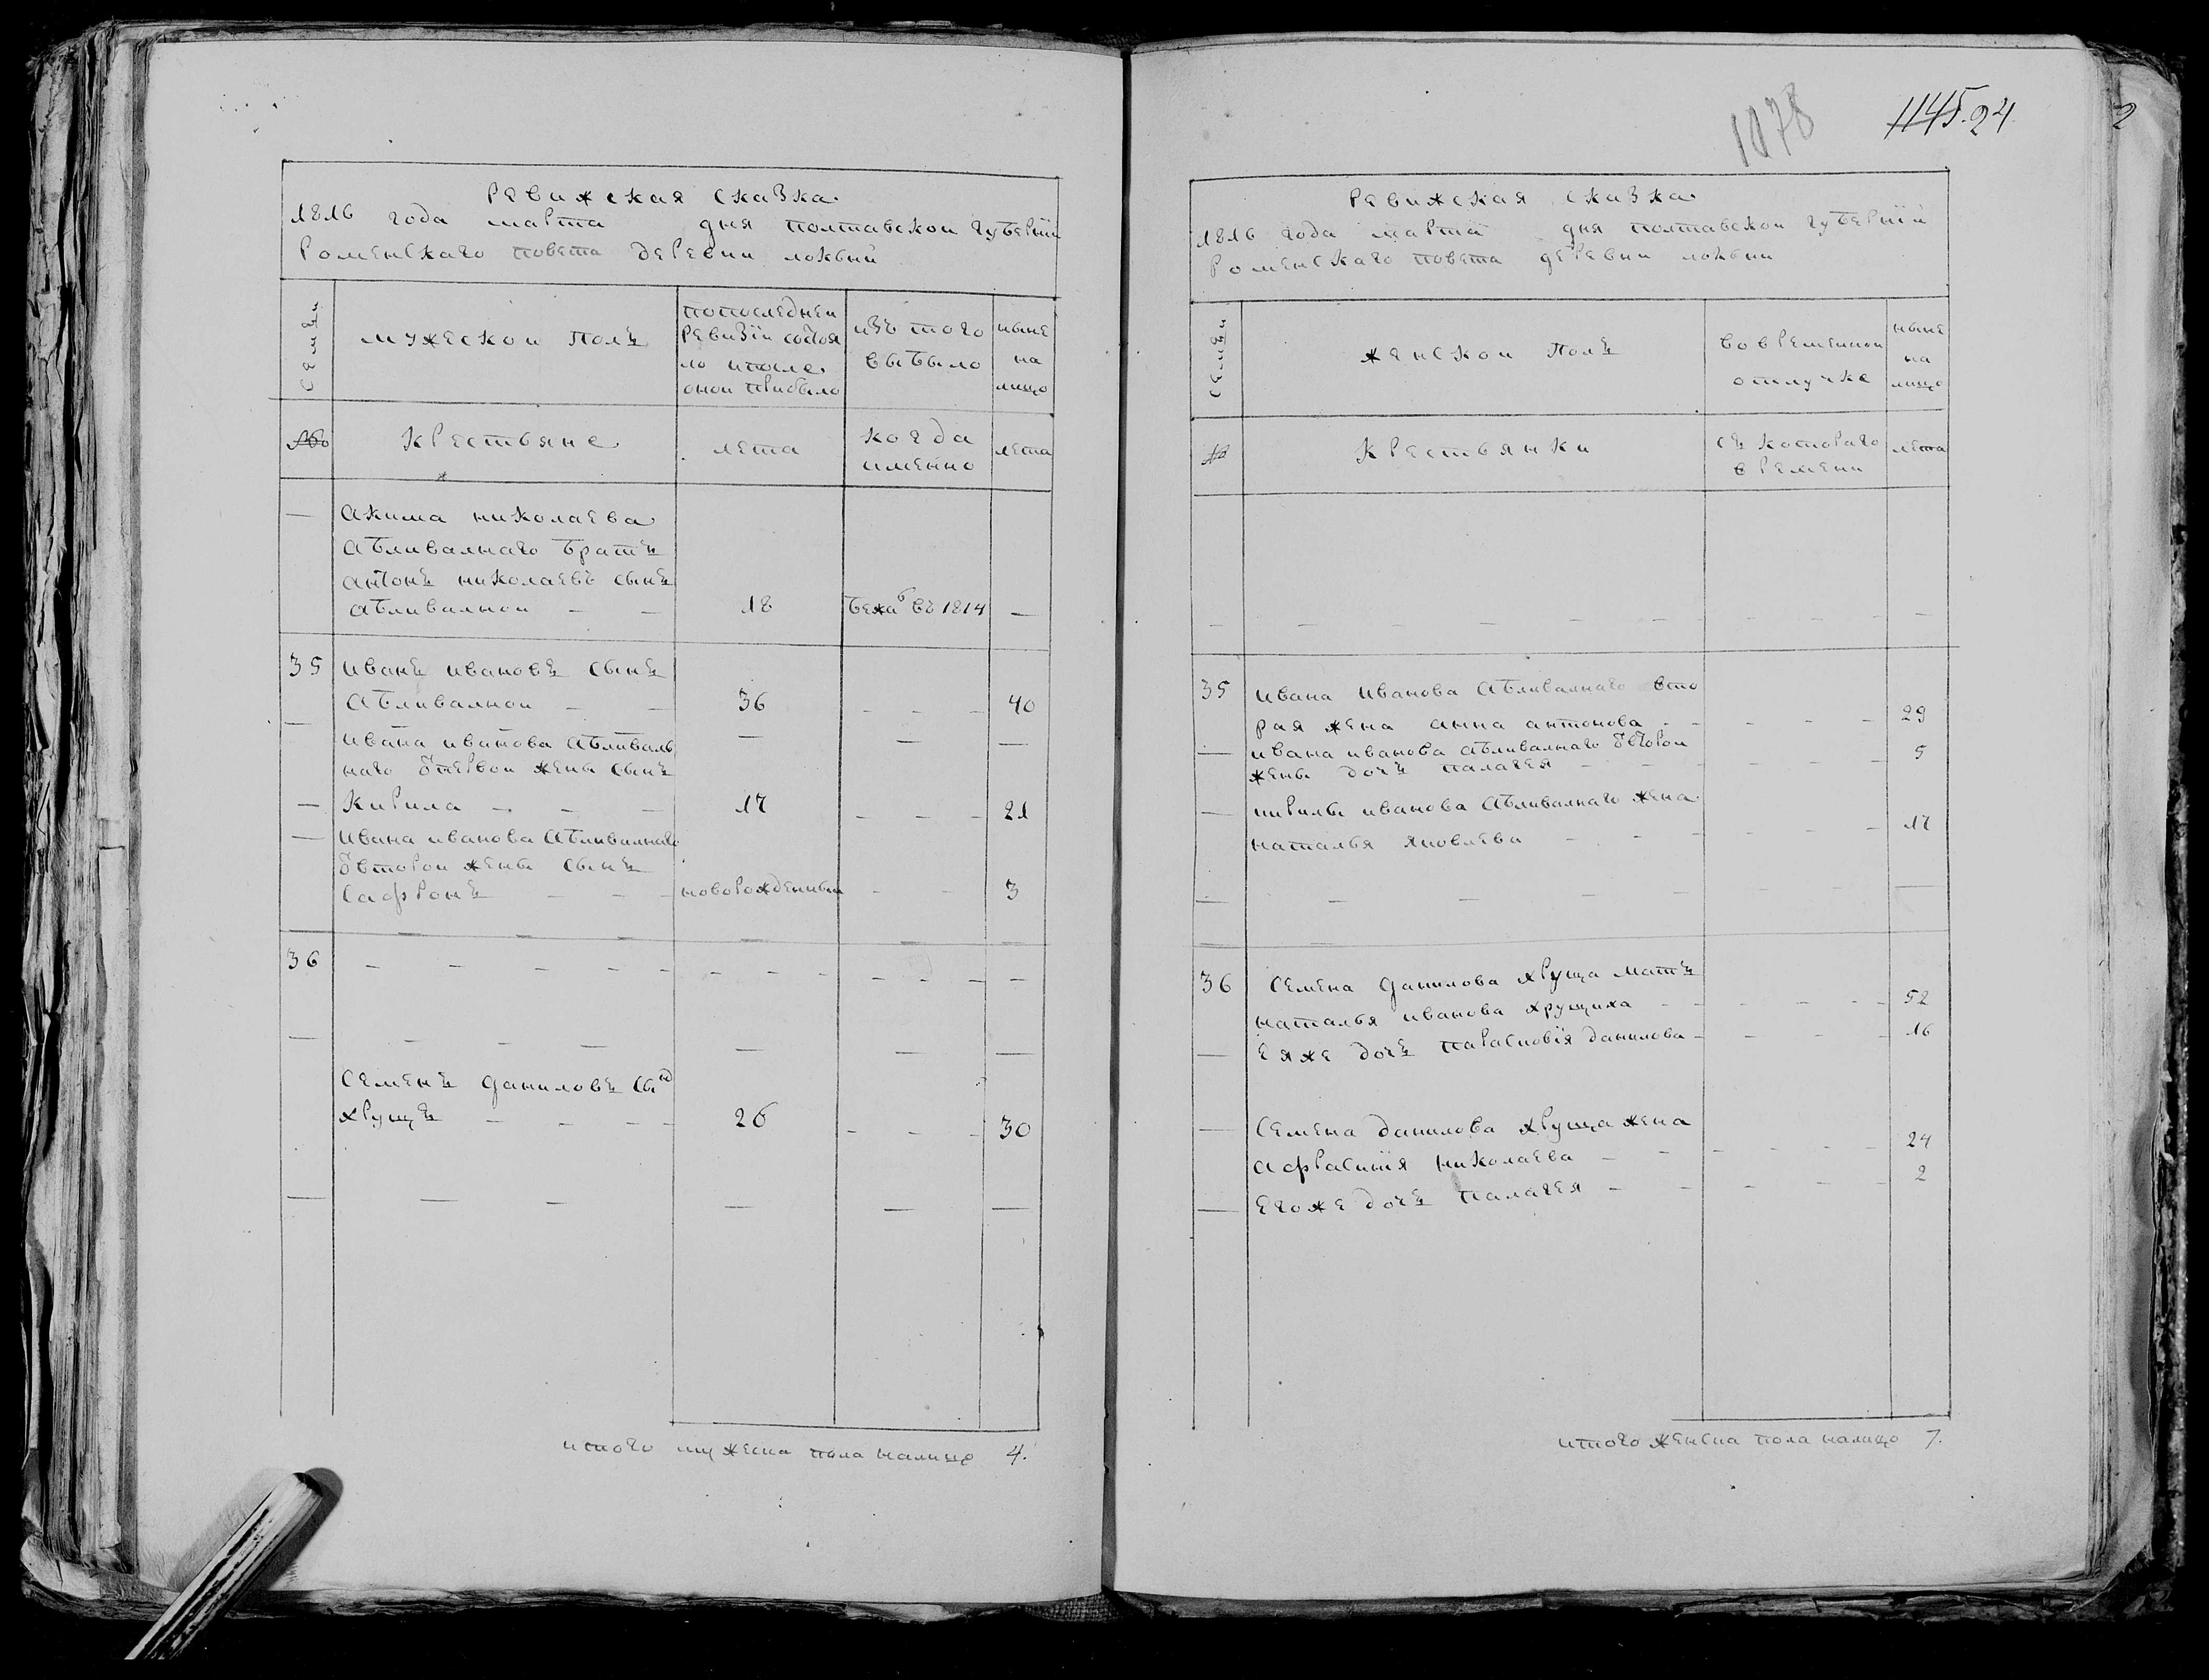 Ревижская сказка
1816 года марта дня полтавской губернии
Роменскаго повета деревни локни
Семьи
мужеской полъ
попоследней ревизии состояло ипосле оной прибыло
изъ того выбыло
ныне на лицо
№
крестьяне
лета
когда именно
лета
— Акима николаева
Абливалнаго братъ
антонъ николаевъ сынъ
абливалной — — 18 бежаᵇ въ 1814 —
35 иванъ ивановъ сынъ
Абливалной — — 36 — — — 40
— ивана иванова Абливаль — — —
наго ѿпервой жены сынъ
— Кирила — — — 17 — — — 21
— ивана иванова Абливалнаго
ѿвторой жены сынъ
Сафронъ — — — новорожденный — — 3
36 — — — — — — — — — — — —
— — — — — — —
Семенъ даниловъ сынъ
хрущъ — — — — 26 — — — 30
— — — — — —
итого мужеска пола налицо 4.
1078
1145. 24
2
Ревижская сказка
1816 года марта дня полтавской губернии
Роменскаго повета деревни локни
Семьи
женской полъ
вовременной отлучке
ныне на лицо
№
крестьянки
съ котораго времени
лета
— — — — — — — — — —
35 ивана иванова Абливалнаго вто
рая жена анна антонова — — — — — 29
— ивана иванова абливалнаго ѿвторой 5
жены дочъ палагея — — — — — —
— кирилы иванова Абливалнаго жена
наталья яковлева — — — — — 17
— — — — —
36 Семена данилова хруща матъ
наталья иванова хрущиха — — — — — — 52
— ея же дочъ парасковия данилова — — — — 16
— Семена данилова хруща жена
афрасиния николаева — — — — — — 24
— его же дочъ палагея — — — — — 2
итого женска пола налицо 7.